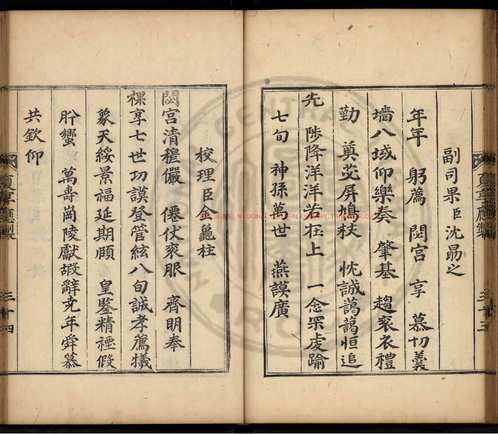 副司果臣沈勗之
年年　躬薦　閟宮　享　慕切羹
墻八域仰樂奏　肇基　趨衮衣禮
勤　奠苾屏鳩杖　忱誠藹藹恒追
先　陟降洋洋若在上　一念罙虔踰
七旬　神孫萬世　燕謨廣
校理臣金龜柱
閟宮清穆儼　僊仗衮服　齊明奉
祼享七世功謨登管絃八旬誠孝薦犧
象天綏景福延期頤　皇鑒精禋假
肸蠁　萬壽崗陵獻嘏辭堯年舜慕
共欽仰
賡章應製
三十四
賡章應製
三十五